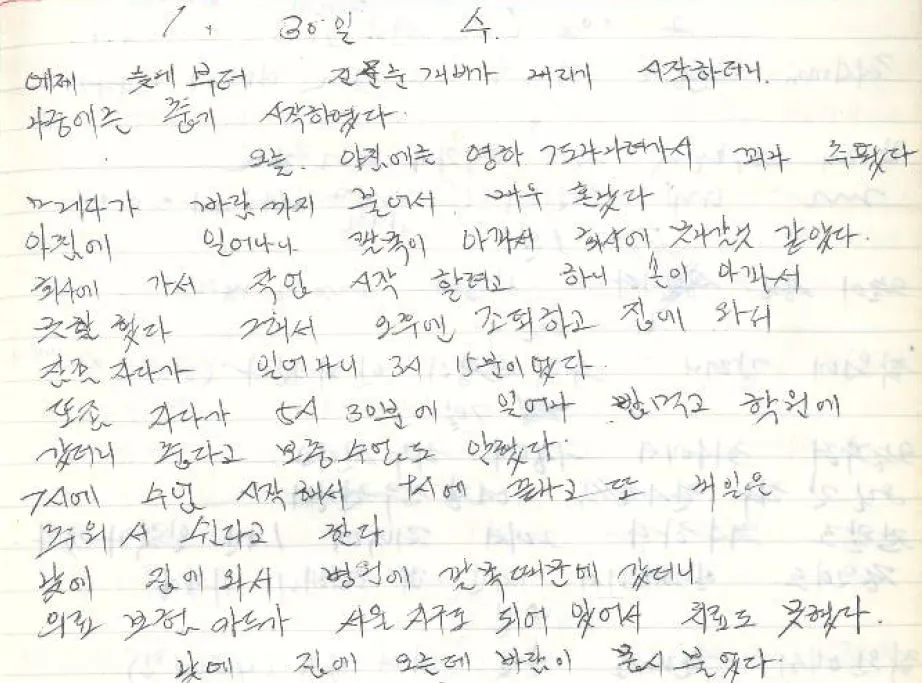 1. 30일 수.
어제 낮에 부터 진눈개비가 내리기 시작하더니.
나중에는 춥기 시작하였다.
오늘. 아침에는 영하 7도라 꽤나 추웠다
게다가 바람까지 불어서. 매우 혼났다
아침에 일어나니 팔굽이 아파서 회사에 못나갈것 같았다.
회사에 가서 작업 시작 할려고 하니 손이 아파서
못할 했다 그래서 오후엔 조퇴하고 집에 와서
자다가 일어나니 3시 15분이였다.
또좀 자다가 5시 30분에 일어나 밥먹고 학원에
갔더니 춥다고 보충수업도 안했다.
7시에 수업 시작해서 9시에 끝나고 또 내일은
추워서 쉰다고 한다
낮에 집에 와서 병원에 팔굽때문에 갔더니
의료 보험 카드가 서울 지구로 되어 있어서 치료도 못했다.
낮에 집에 오는데 바람이 몹시 불었다.